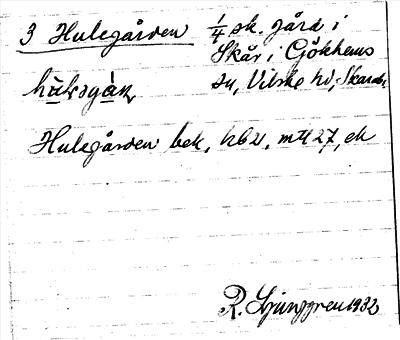 3 Hulegården 1/4 sk. gård i
Skår i Gökhems
sn, Vilske hd, Skarab.
Hulegården bek, hb2, mtl 27, ek
R. Ljunggren 1932